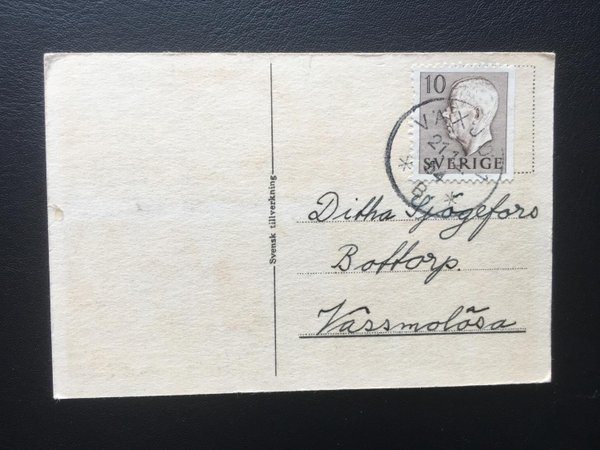 10
SVERIGE
VÄXJÖ
Svensk tillverkning
Ditha Sjögefors
Bottorp.
Vassmolösa